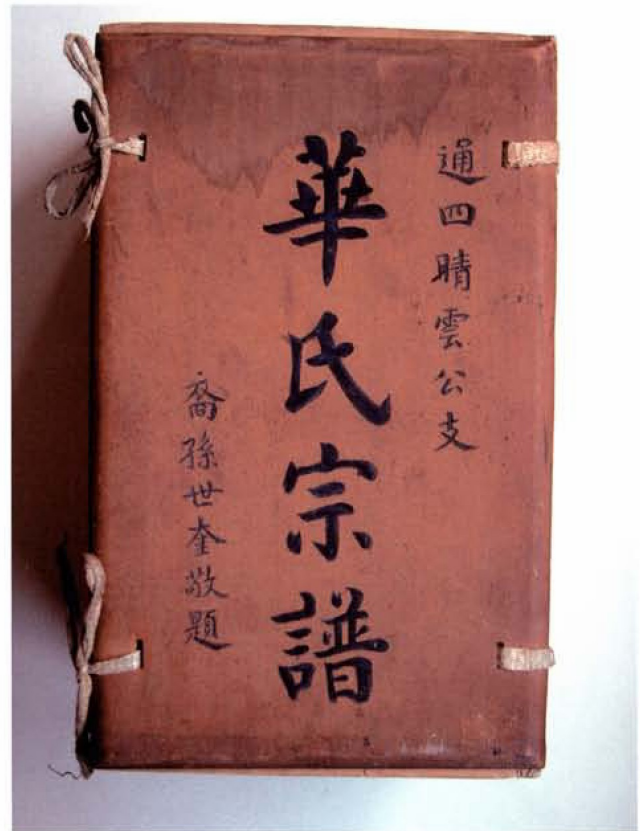 通四晴雲公支
華氏宗譜
裔孫世奎敬題